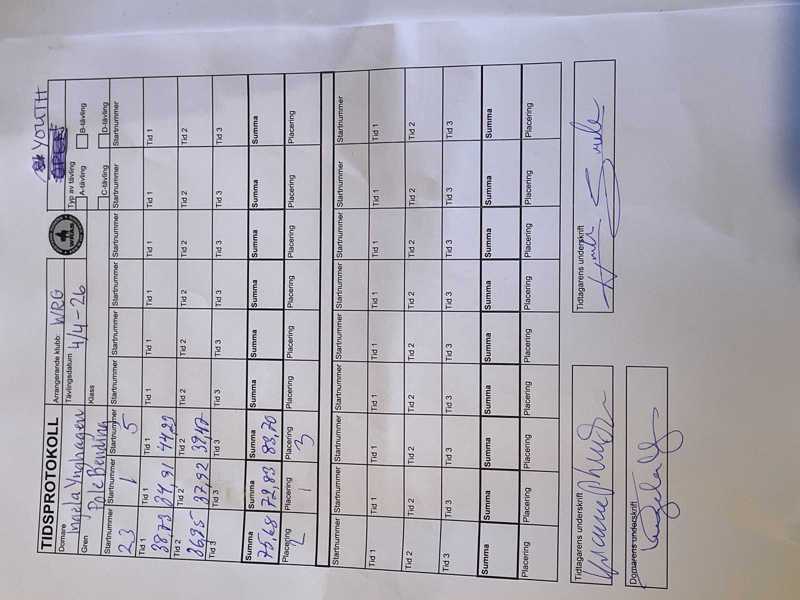 TIDSPROTOKOLL Arrangerande klubb: WRG YOUTH
Domare Ingela Ynghagen Tävlingsdatum 4/4-26 Typ av tävling
Gren Pole Bending Klass A-tävling B-tävling
C-tävling D-tävling
Startnummer Startnummer Startnummer Startnummer Startnummer Startnummer Startnummer Startnummer Startnummer
23 1 5
Tid 1 Tid 1 Tid 1 Tid 1 Tid 1 Tid 1 Tid 1 Tid 1 Tid 1
38,73 34,91 44,23
Tid 2 Tid 2 Tid 2 Tid 2 Tid 2 Tid 2 Tid 2 Tid 2 Tid 2
36,95 37,92 39,47
Tid 3 Tid 3 Tid 3 Tid 3 Tid 3 Tid 3 Tid 3 Tid 3 Tid 3
Summa Summa Summa Summa Summa Summa Summa Summa Summa
75,68 72,83 83,70
Placering Placering Placering Placering Placering Placering Placering Placering Placering
2 1 3
Startnummer Startnummer Startnummer Startnummer Startnummer Startnummer Startnummer Startnummer Startnummer
Tid 1 Tid 1 Tid 1 Tid 1 Tid 1 Tid 1 Tid 1 Tid 1 Tid 1
Tid 2 Tid 2 Tid 2 Tid 2 Tid 2 Tid 2 Tid 2 Tid 2 Tid 2
Tid 3 Tid 3 Tid 3 Tid 3 Tid 3 Tid 3 Tid 3 Tid 3 Tid 3
Summa Summa Summa Summa Summa Summa Summa Summa Summa
Placering Placering Placering Placering Placering Placering Placering Placering Placering
Tidtagarens underskrift Tidtagarens underskrift
Domarens underskrift